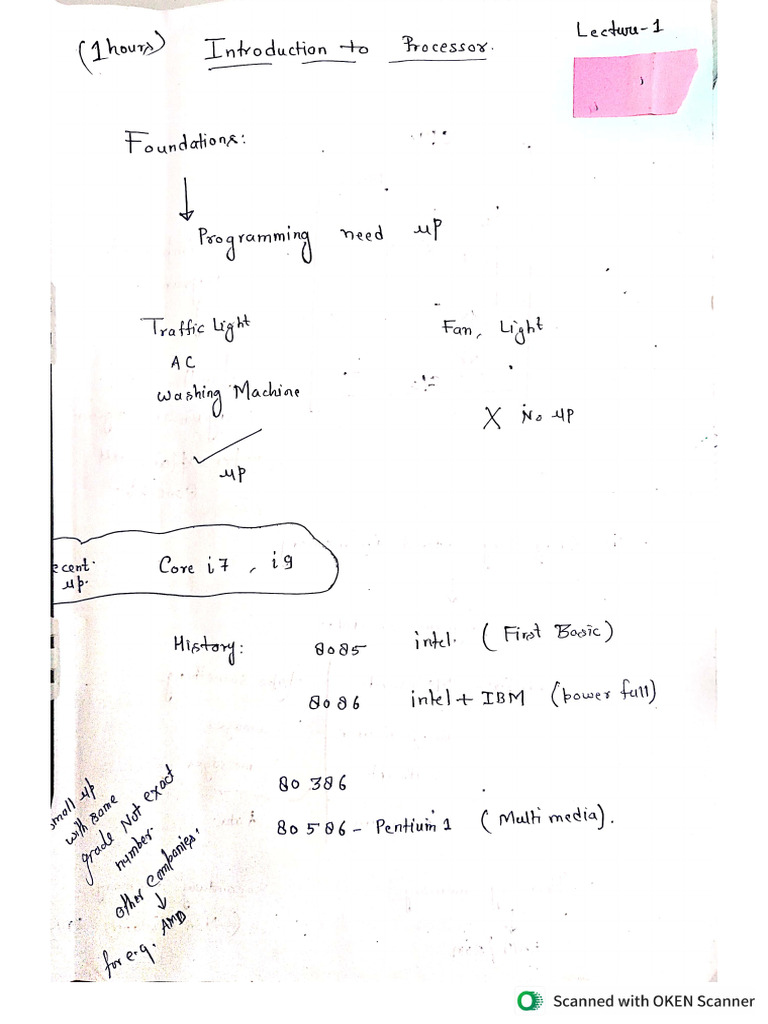 (1 hours) Introduction to Processor.
Lecture-1
Foundations:
Programming need μP
Traffic Light
AC
Washing Machine
μP
Fan, Light
X No μP
ecent.
μp.
Core i7, i9
History:
8085 intel. (First Basic)
8086 intel + IBM (power full)
80 386
80 586 - Pentium 1 (Multi media).
small μp
with same
grade Not exact
number.
other companies.
for e.g. AMD.
Scanned with OKEN Scanner